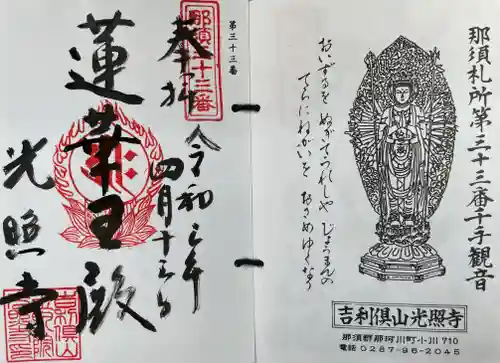 那須札所第三十三番千手観音
おいずるを ぬがてうれしや じょうえんの
てらにねがいを おさめゆくなり
吉利倶山光照寺
那須郡那珂川町小川710
電話 0287-96-2045
第三十三番
那須三十三番
奉拝
令和三年
四月十三日
蓮華王殿
光照寺